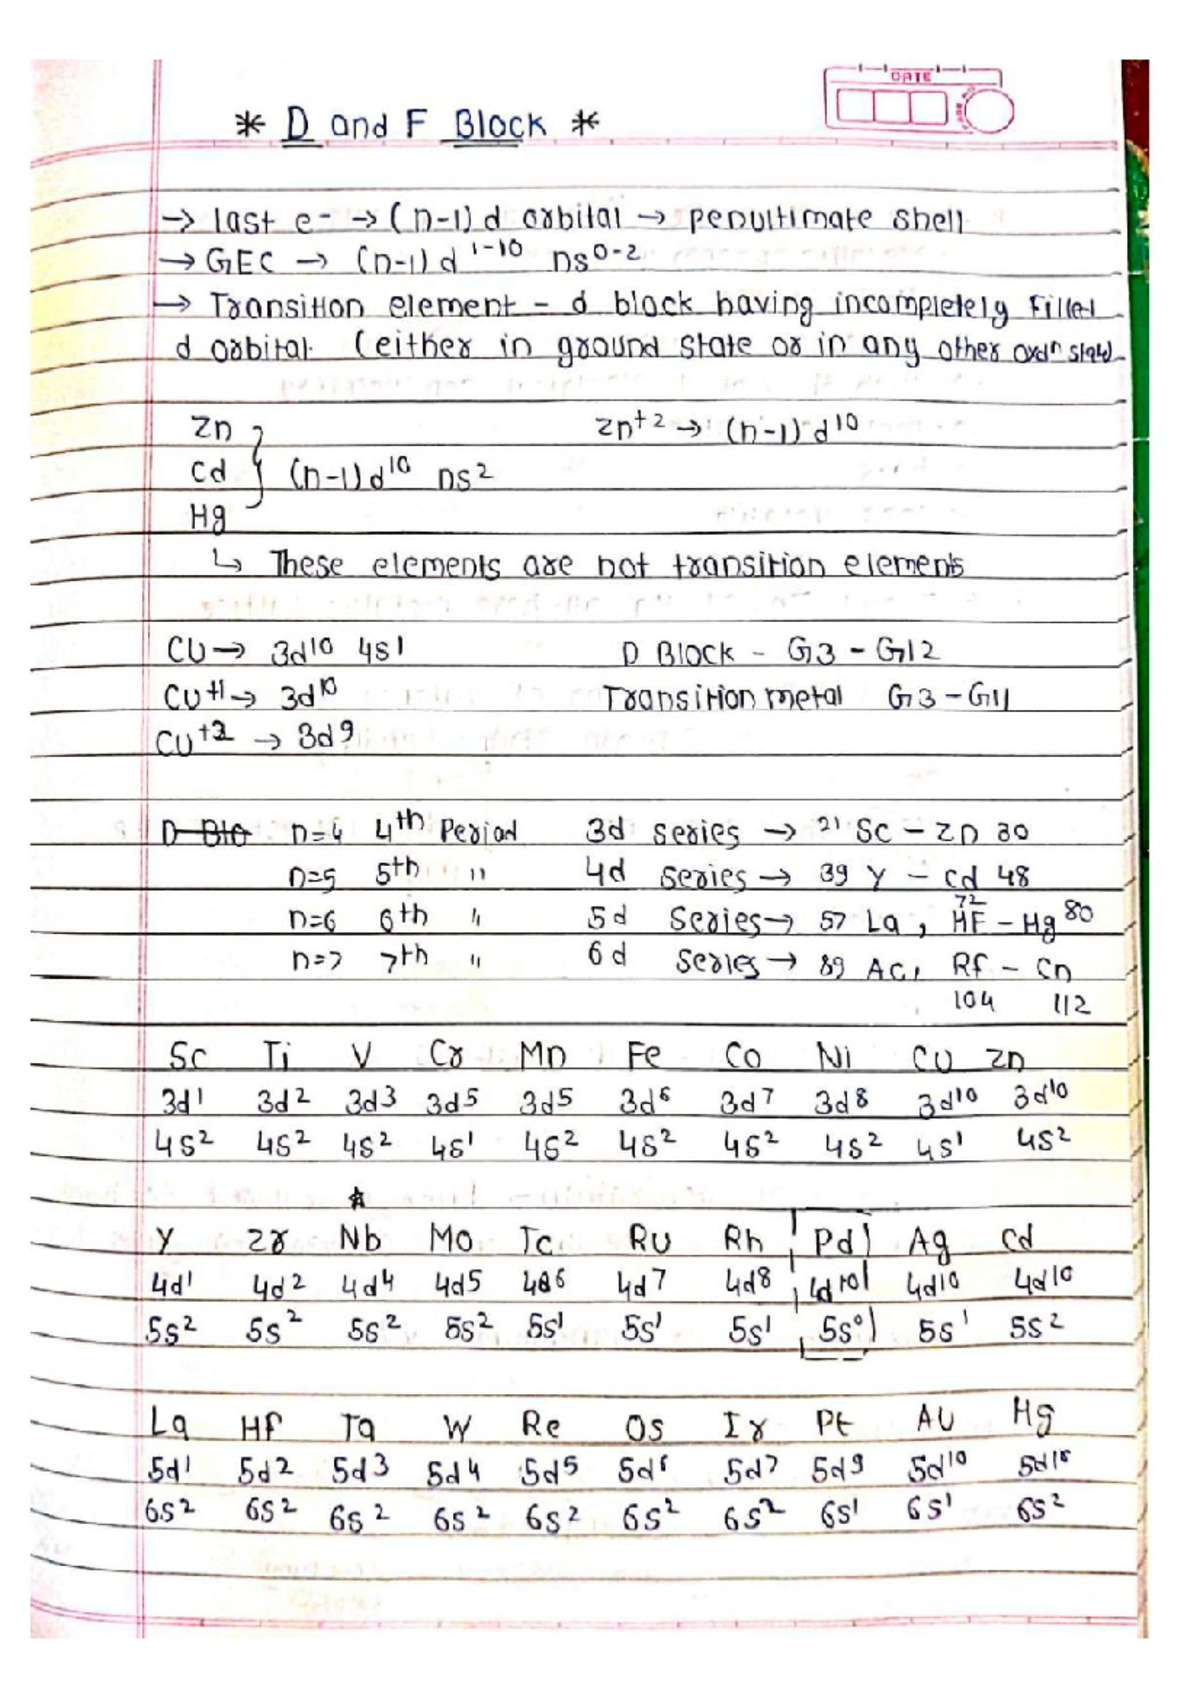 DATE
* D and F Block *
→ last e- → (n-1) d orbital → penultimate shell
→ GEC → (n-1) d¹⁻¹⁰ ns⁰⁻²
→ Transition element - d block having incompletely filled
d orbital. (either in ground state or in any other oxdⁿ state)
Zn
Zn⁺² → (n-1) d¹⁰
Cd } (n-1)d¹⁰ ns²
Hg
↳ These elements are not transition elements
Cu → 3d¹⁰ 4s¹ D Block - G3 - G12
Cu⁺¹ → 3d¹⁰ Transition metal G3 - G11
Cu⁺² → 3d⁹
D Blo n=4 4th Period 3d series → 21 Sc - Zn 30
n=5 5th " 4d series → 39 Y - Cd 48
n=6 6th " 5d series → 57 La, 72 HF - Hg 80
n=7 7th " 6d series → 89 Ac, Rf - Cn
104 112
Sc Ti V Cr Mn Fe Co Ni Cu Zn
3d¹ 3d² 3d³ 3d⁵ 3d⁵ 3d⁶ 3d⁷ 3d⁸ 3d¹⁰ 3d¹⁰
4s² 4s² 4s² 4s¹ 4s² 4s² 4s² 4s² 4s¹ 4s²
Y Zr Nb Mo Tc Ru Rh Pd Ag Cd
4d¹ 4d² 4d⁴ 4d⁵ 4d⁶ 4d⁷ 4d⁸ 4d¹⁰ 4d¹⁰ 4d¹⁰
5s² 5s² 5s² 5s² 5s¹ 5s¹ 5s¹ 5s⁰ 5s¹ 5s²
La Hf Ta W Re Os Ir Pt Au Hg
5d¹ 5d² 5d³ 5d⁴ 5d⁵ 5d⁶ 5d⁷ 5d⁹ 5d¹⁰ 5d¹⁰
6s² 6s² 6s² 6s² 6s² 6s² 6s² 6s¹ 6s¹ 6s²